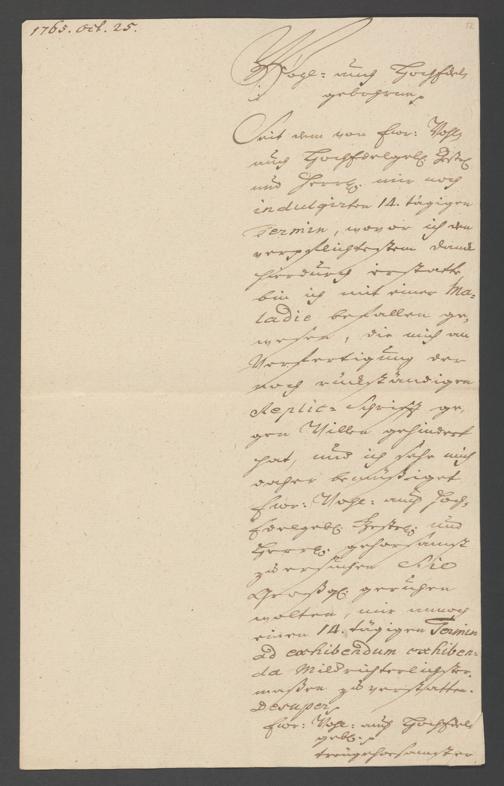 1765. Oct. 25.
52
Wohl- auch Hochedel
gebohrne
Seit dem von Ewr: Wohl
auch Hochedelgeb.
und Herrl. mir noch
indulgirten 14. tägigen
Termin, wovor ich den
verpflichtesten Danck
hierdurch erstatte,
bin ich mit einer Ma-
ladie befallen ge-
wesen, die mich an
Verfertigung der
noch rückständigen
Replic-Schrifft ge-
gen Willen gehindert
hat, und ich sehe mich
daher bemüßiget
Ewr: Wohl- auch Hoch-
Edelgeb. und
Herrl. gehorsamst
zu ersuchen Sie
geruhen
wolten, mir annoch
einen 14. tägigen Termin
ad exhibendum exhiben-
da Mildrichterlichster
maßen zu verstatten.
Desuper
Ewr: Wohl- auch Hochedel
geb.
treugehorsamster